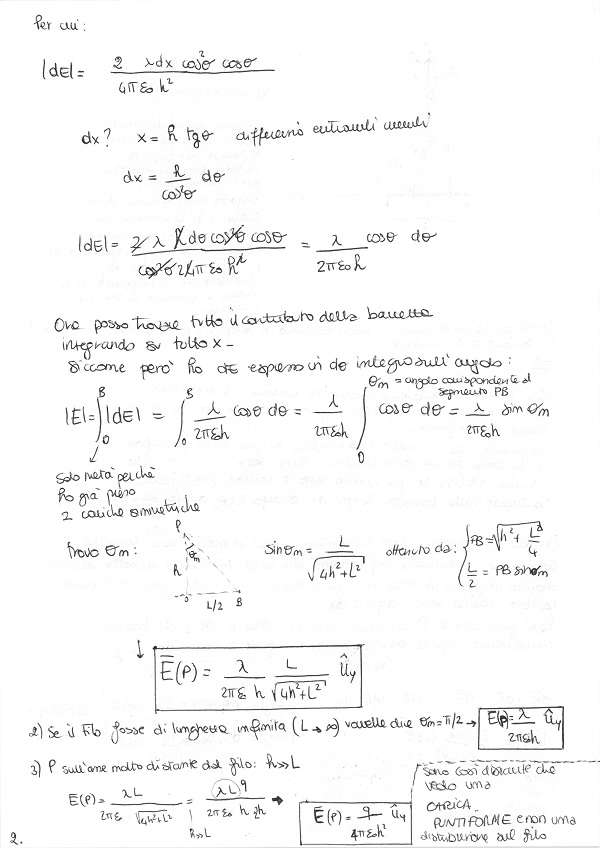 Per cui:
|dE| = 2 λdx cos²θ cosθ / 4πε₀ h²
dx? x = h tgθ differenzio entrambi i membri
dx = h / cos²θ dθ
|dE| = 2 λ h dθ cos²θ cosθ / cos²θ 2 4πε₀ h² = λ / 2πε₀h cosθ dθ
Ora posso trovare tutto il contributo della barretta
integrando su tutto x -
Siccome però ho dE espresso in dθ integro sull'angolo:
θm = angolo corrispondente al
segmento PB
|E| = ∫₀ᴮ |dE| = ∫₀ᴮ λ / 2πε₀h cosθ dθ = λ / 2πε₀h ∫₀ cosθ dθ = λ / 2πε₀h sinθm
Solo metà perchè
ho già preso
2 cariche simmetriche
Trovo θm: P θm h L/2 B sinθm = L / √4h²+L² ottenuto da: { PB = √h² + L²/4
L/2 = PB sinθm
↓ E(P) = λ / 2πε h L / √4h²+L² ûy
2) Se il filo fosse di lunghezza infinita (L → ∞) varrebbe due θm = π/2 → E(P) = λ / 2πεh ûy
3) P sull'asse molto distante dal filo: h>>L
E(P) = λL / 2πε √4h²+L² = λL q / 2πε h 2h → E(P) = q / 4πεh² ûy
h>>L
sono così distante che
vedo una
CARICA
PUNTIFORME e non una
distribuzione sul filo
2.